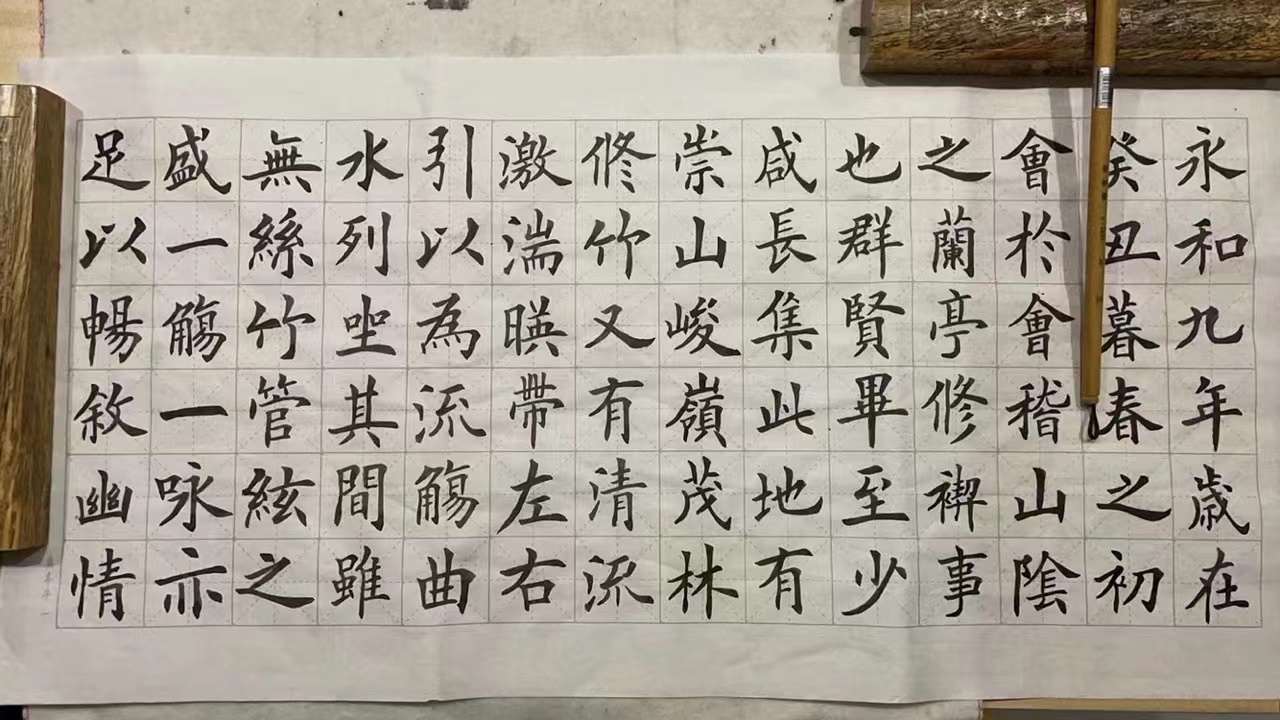 永和九年歲在
癸丑暮春之初
會於會稽山陰
之蘭亭修禊事
也群賢畢至少
咸長集此地有
崇山峻嶺茂林
修竹又有清流
激湍暎帶左右
引以為流觴曲
水列坐其間雖
無絲竹管絃之
盛一觴一咏亦
足以暢敘幽情